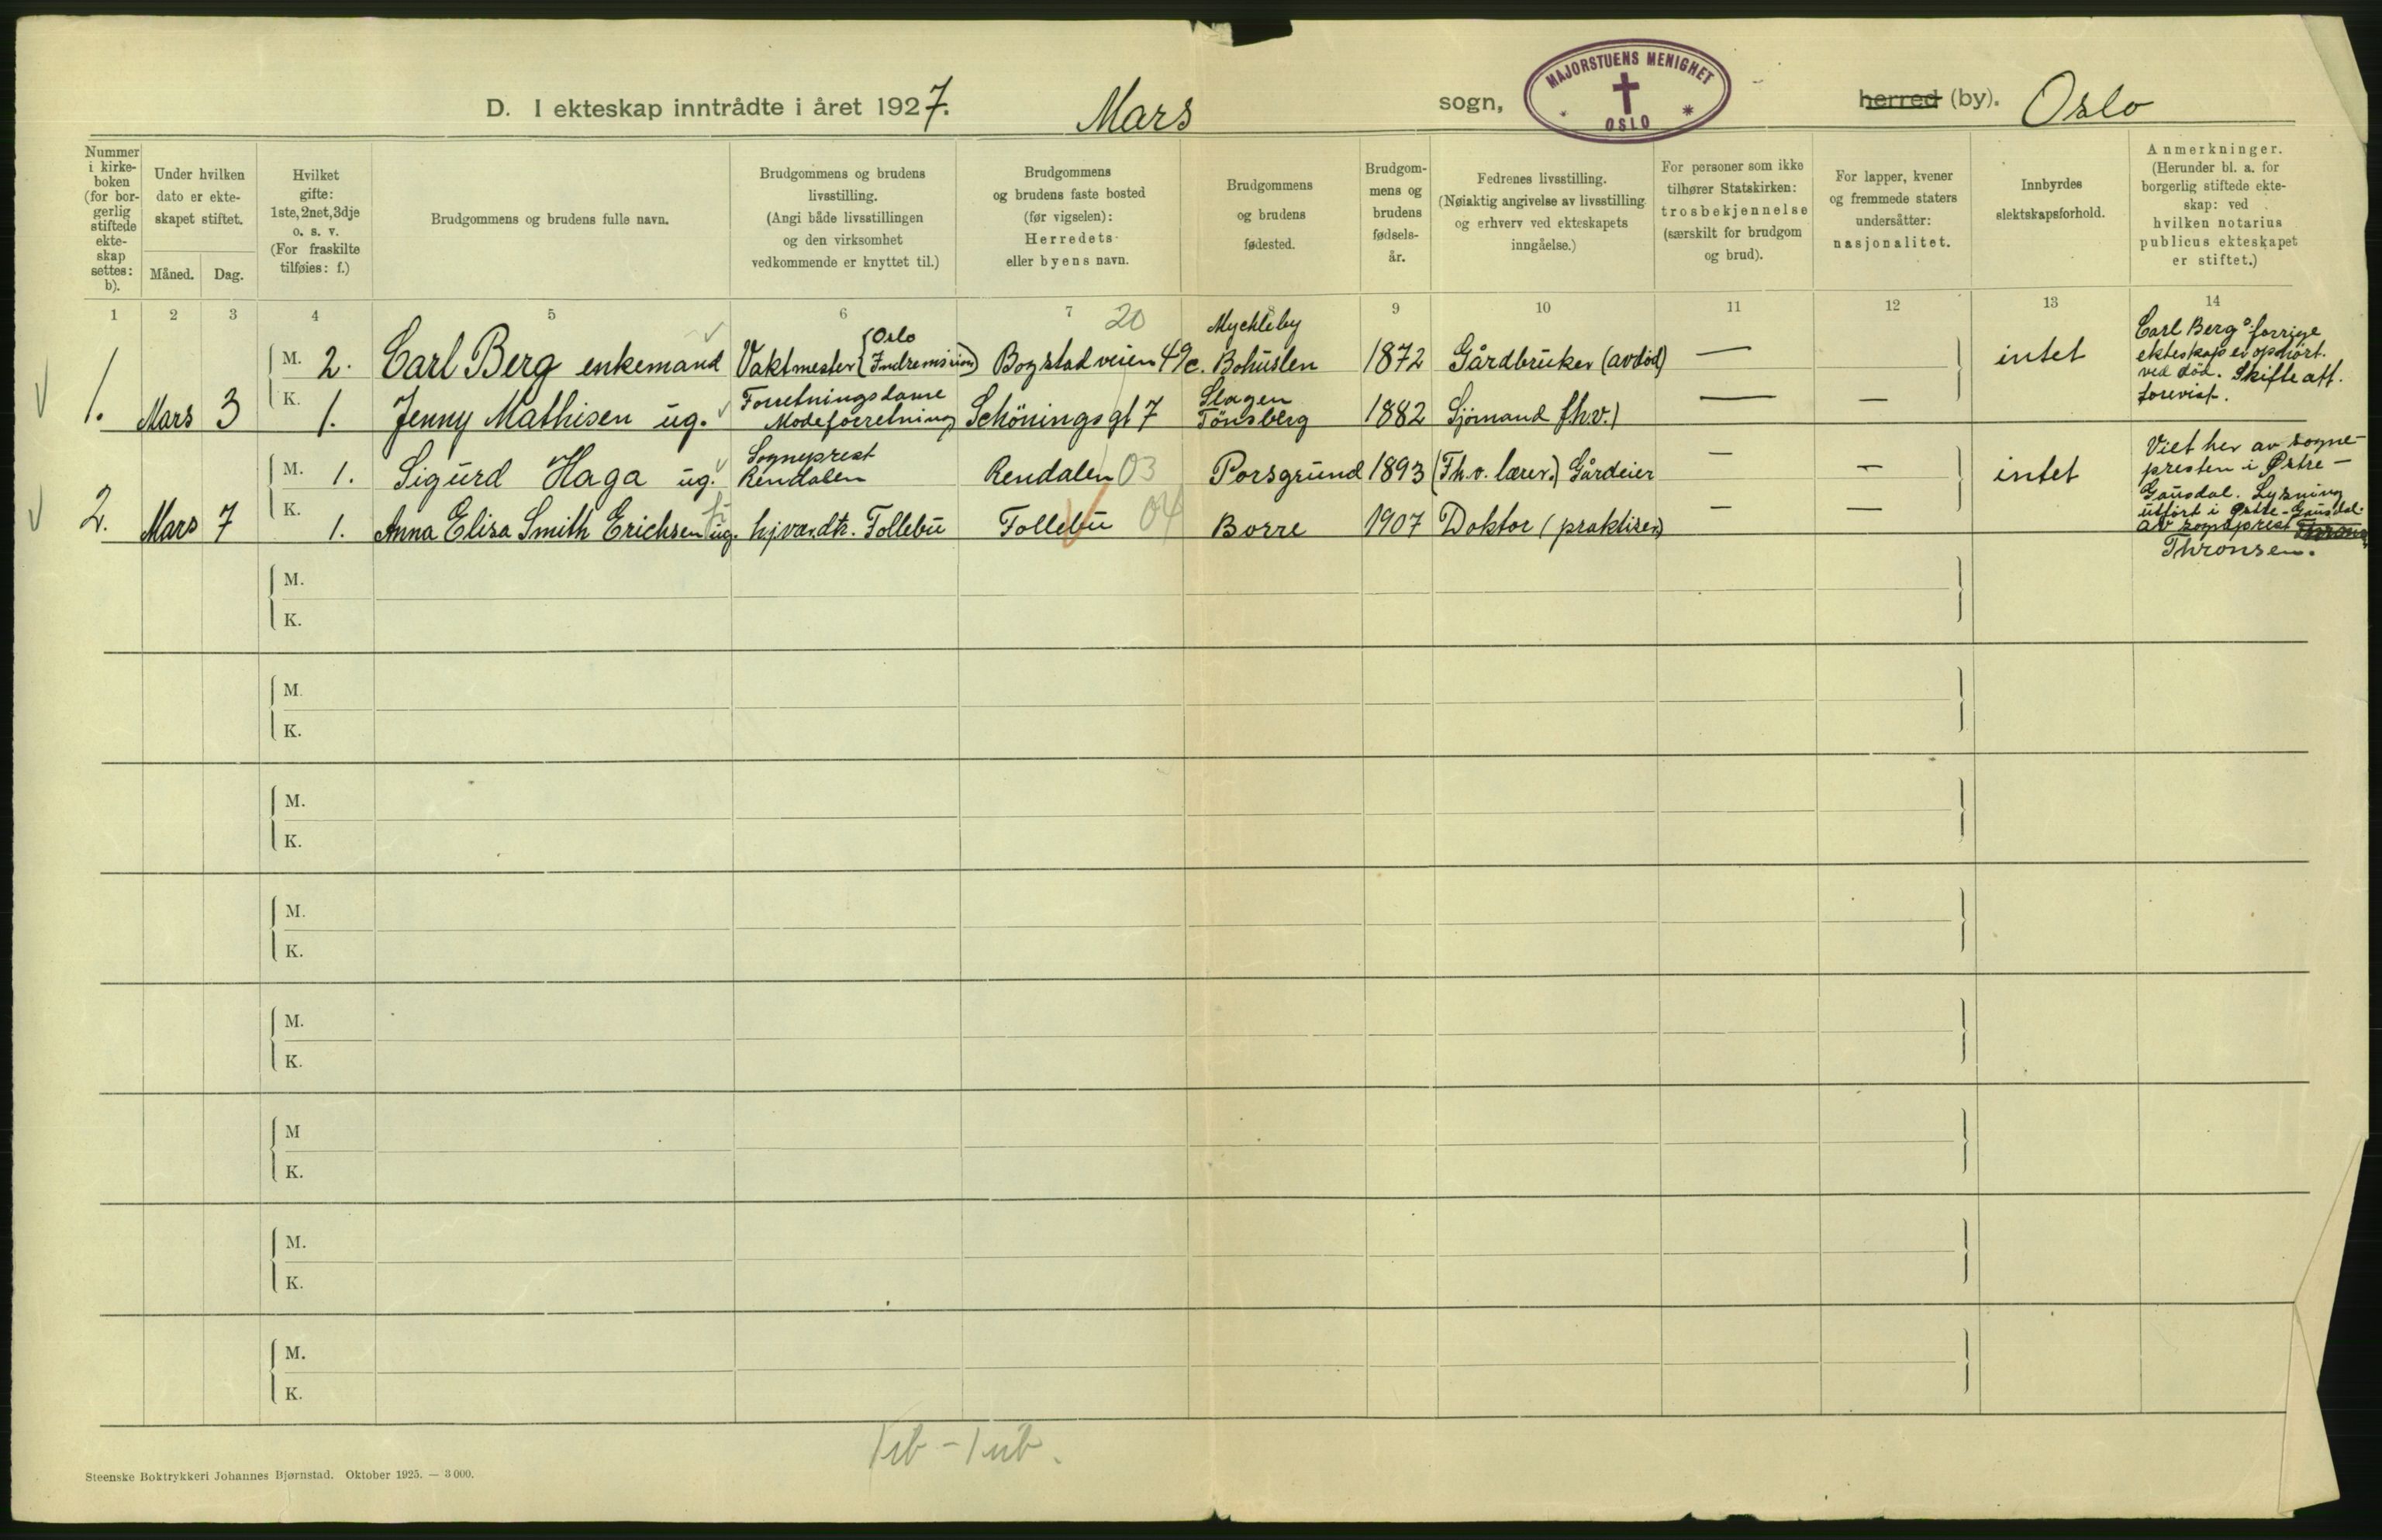 D. I ekteskap inntrådte i året 1927. Mars sogn, MAJORSTUENS MENIGHET OSLO herred (by). Oslo
Nummer i kirke-boken (for bor-gerlig stiftede ekte-skap settes: b).
Under hvilken dato er ekte-skapet stiftet.
Måned. Dag.
Hvilket gifte: 1ste, 2net, 3dje o. s. v. (For fraskilte tilføies: f.)
Brudgommens og brudens fulle navn.
Brudgommens og brudens livsstilling. (Angi både livsstillingen og den virksomhet vedkommende er knyttet til.)
Brudgommens og brudens faste bosted (før vigselen): Herredets eller byens navn.
Brudgommens og brudens fødested.
Brudgom-mens og brudens fødsels-år.
Fedrenes livsstilling. (Nøiaktig angivelse av livsstilling og erhverv ved ekteskapets inngåelse.)
For personer som ikke tilhører Statskirken: trosbekjennelse (særskilt for brudgom og brud).
For lapper, kvener og fremmede staters undersåtter: nasjonalitet.
Innbyrdes slektskapsforhold.
Anmerkninger. (Herunder bl. a. for borgerlig stiftede ekte-skap: ved hvilken notarius publicus ekteskapet er stiftet.)
1 2 3 4 5 6 7 8 9 10 11 12 13 14
20
M. 2. Carl Berg enkemand Vaktmester (Oslo Indremisjon) Bogstadveien 49c. Mychleby Bohuslen 1872 Gårdbruker (avdød) — intet
1. Mars 3 K. 1. Jenny Mathisen ug. Forretningsdame Modeforretning Schönings gt 7 Slagen Tönsberg 1882 Sjømand f.h.v.) — —
Carl Bergs forrige
ekteskap er ophört
ved död. Skifte att.
forevist.
M. 1. Sigurd Haga ug. Sogneprest Rendalen Rendalen 03 Porsgrund 1893 (Fh.v. lærer.) Gårdeier — — intet
2. Mars 7 K. 1. Anna Elisa Smith Erichsen ug. hj.vær. dtr. Follebu Follebu 04 Borre 1907 Doktor (praktiser.) — —
Viet her av sogne-
presten i Østre-
Gausdal. Lysning
utført i Østre-Gausdal
av sogneprest
Thronsen.
M.
K.
M.
K.
M.
K.
M.
K.
M.
K.
M
K.
M.
K.
M.
K.
Steenske Boktrykkeri Johannes Bjørnstad. Oktober 1925. — 3 000.